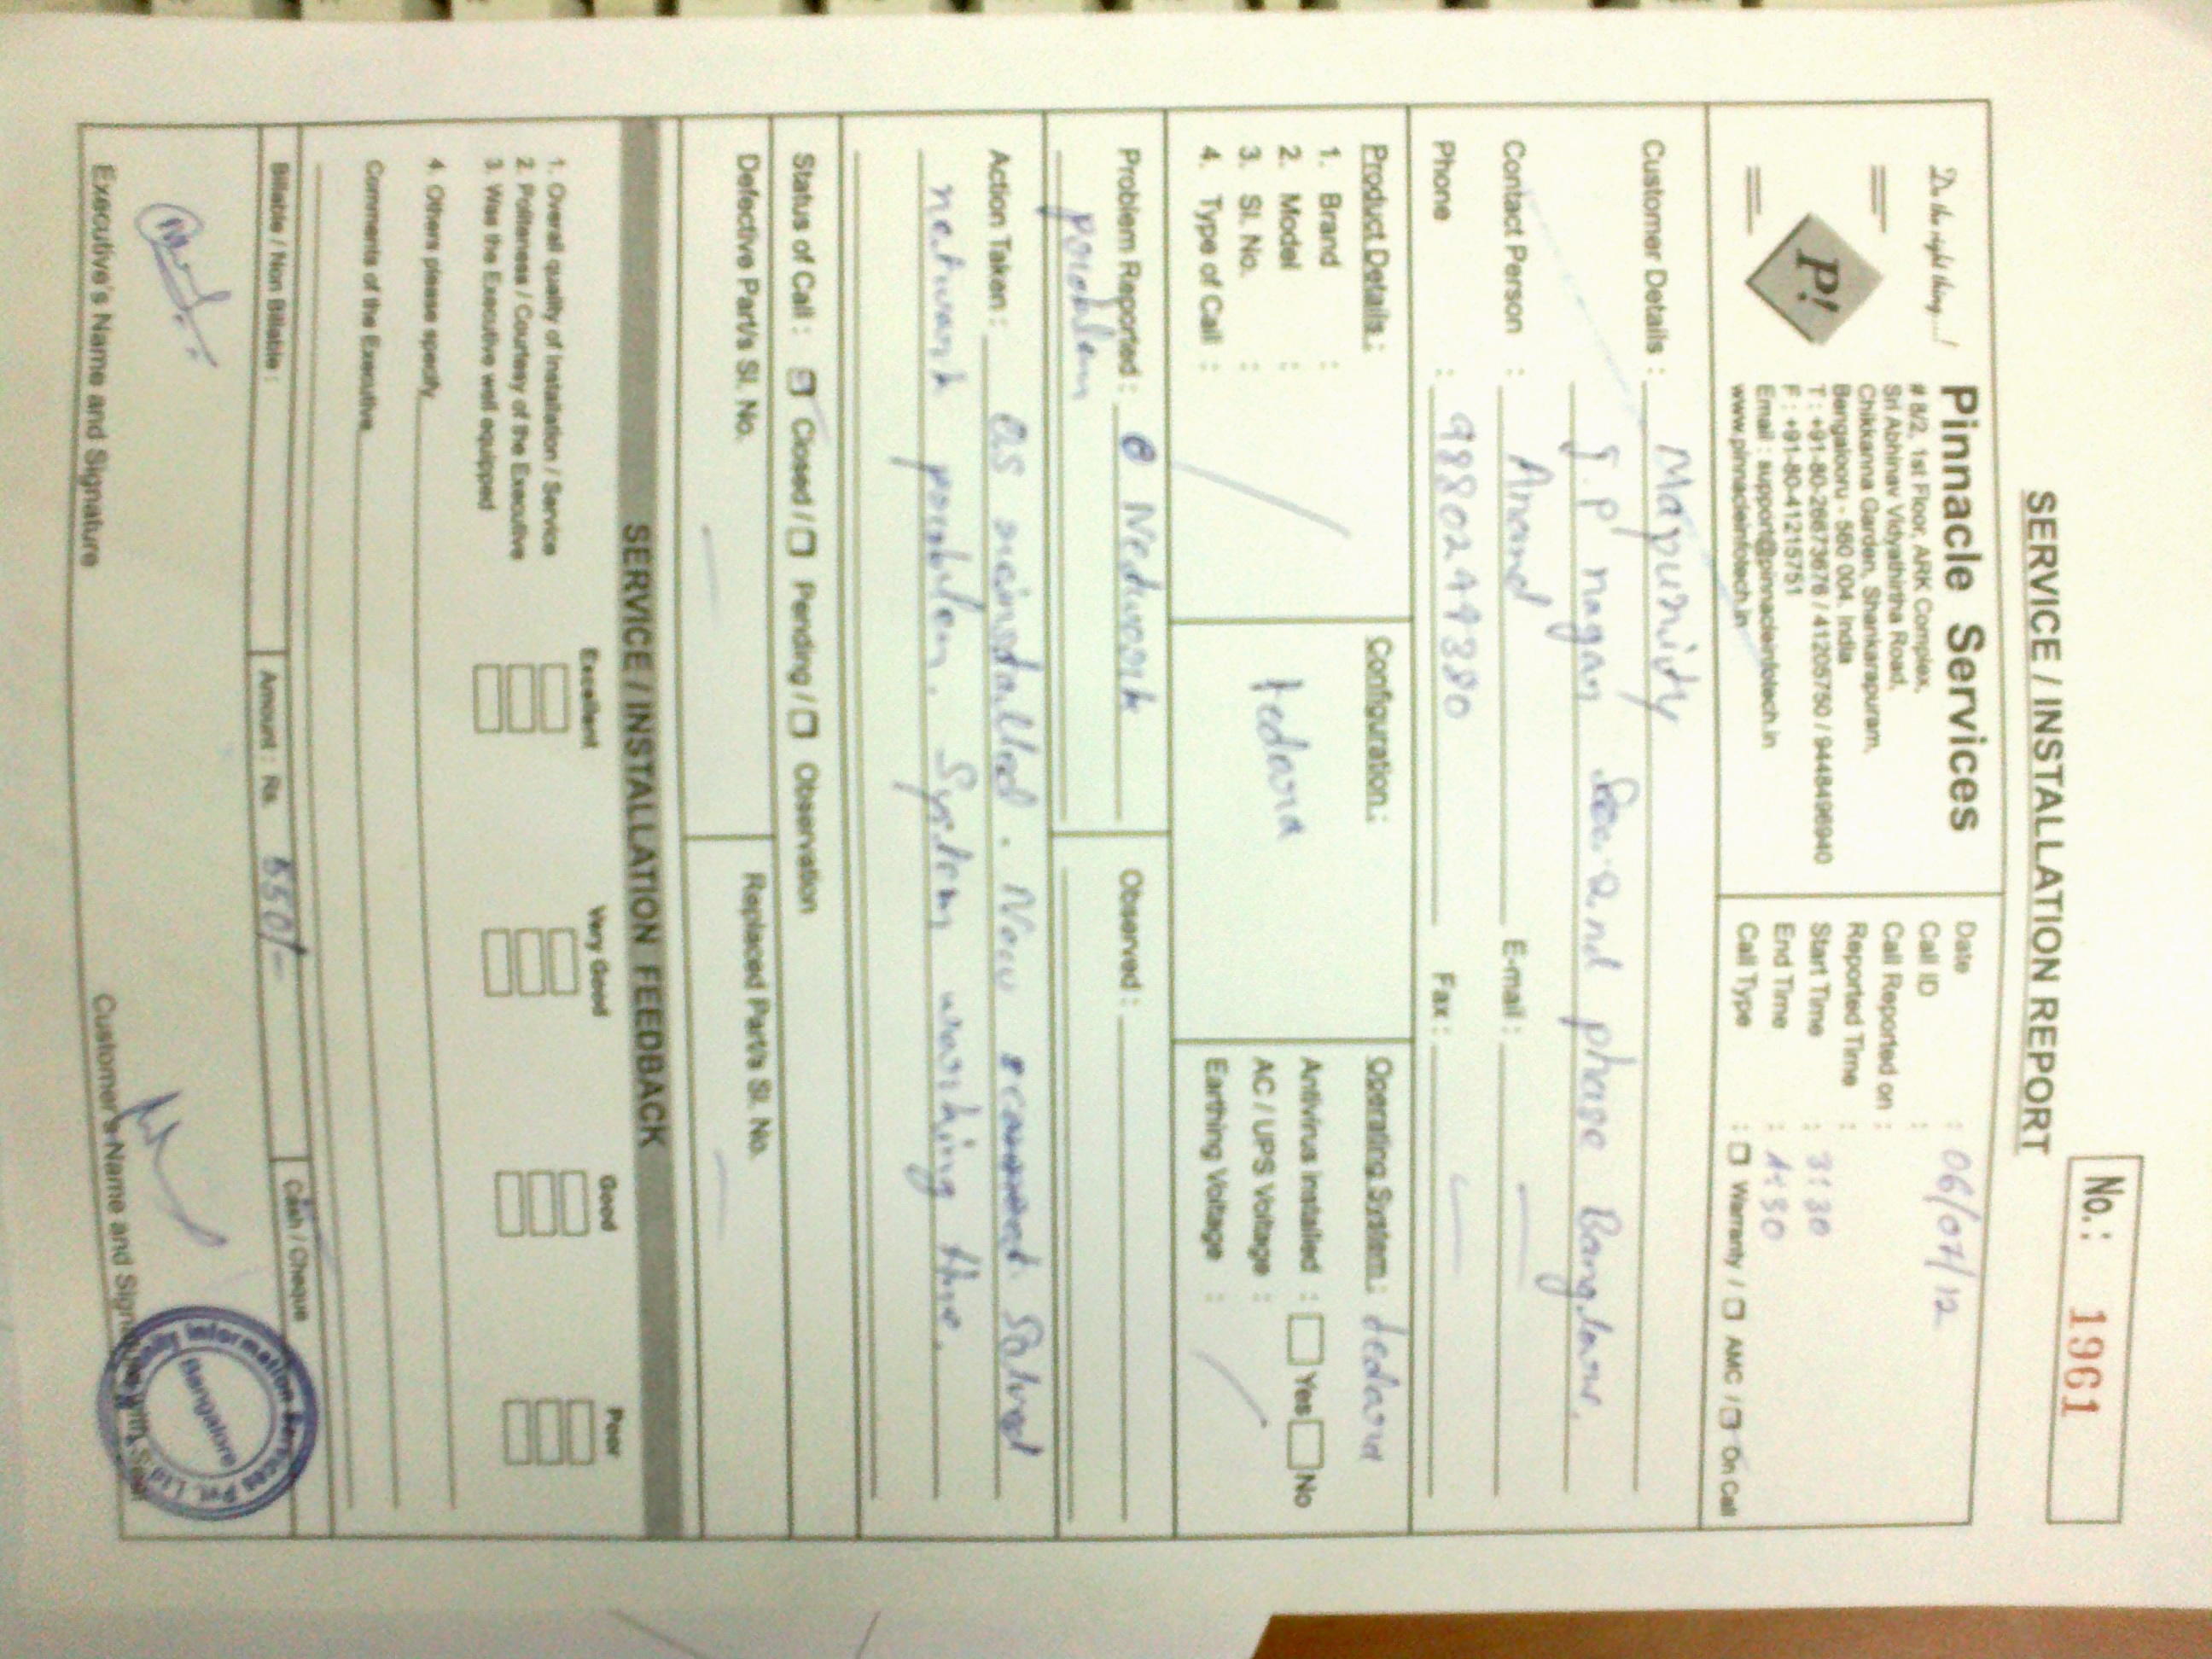 SERVICE / INSTALLATION REPORT
No.: 1961
Do the right thing....!
P!
Pinnacle Services
# 8/2, 1st Floor, ARK Complex,
Sri Abhinav Vidyathirtha Road,
Chikkanna Garden, Shankarapuram,
Bangalooru - 560 004. India
T : +91-80-26673676 / 41205750 / 9448496940
F : +91-80-41215751
Email : support@pinnacleinfotech.in
www.pinnacleinfotech.in
Date : 06/07/12
Call ID :
Call Reported on :
Reported Time :
Start Time : 3:30
End Time : 4:30
Call Type : Warranty / AMC / On Call
Customer Details : Mapunity
J.P nagar Sec. 2nd phase Banglaor.
Contact Person : Anand E-mail :
Phone : 9880249380 Fax :
Product Details :
1. Brand :
2. Model :
3. Sl. No. :
4. Type of Call :
Configuration :
fedora
Operating System : fedora
Antivirus Installed : Yes No
AC / UPS Voltage :
Earthing Voltage :
Problem Reported : Network
poroblem
Observed :
Action Taken : OS reinstalled. New Solved
network poroblem. System working fine.
Status of Call : Closed / Pending / Observation
Defective Part/s Sl. No.
Replaced Part/s Sl. No.
SERVICE / INSTALLATION FEEDBACK
Excellent Very Good Good Poor
1. Overall quality of Installation / Service
2. Politeness / Courtesy of the Executive
3. Was the Executive well equipped
4. Others please specify
Comments of the Executive
Billable / Non Billable :
Amount : Rs. 550/-
Cash / Cheque
Executive's Name and Signature
Customer's Name and Signature with Seal
Information Services Pvt. Ltd.
Bangalore